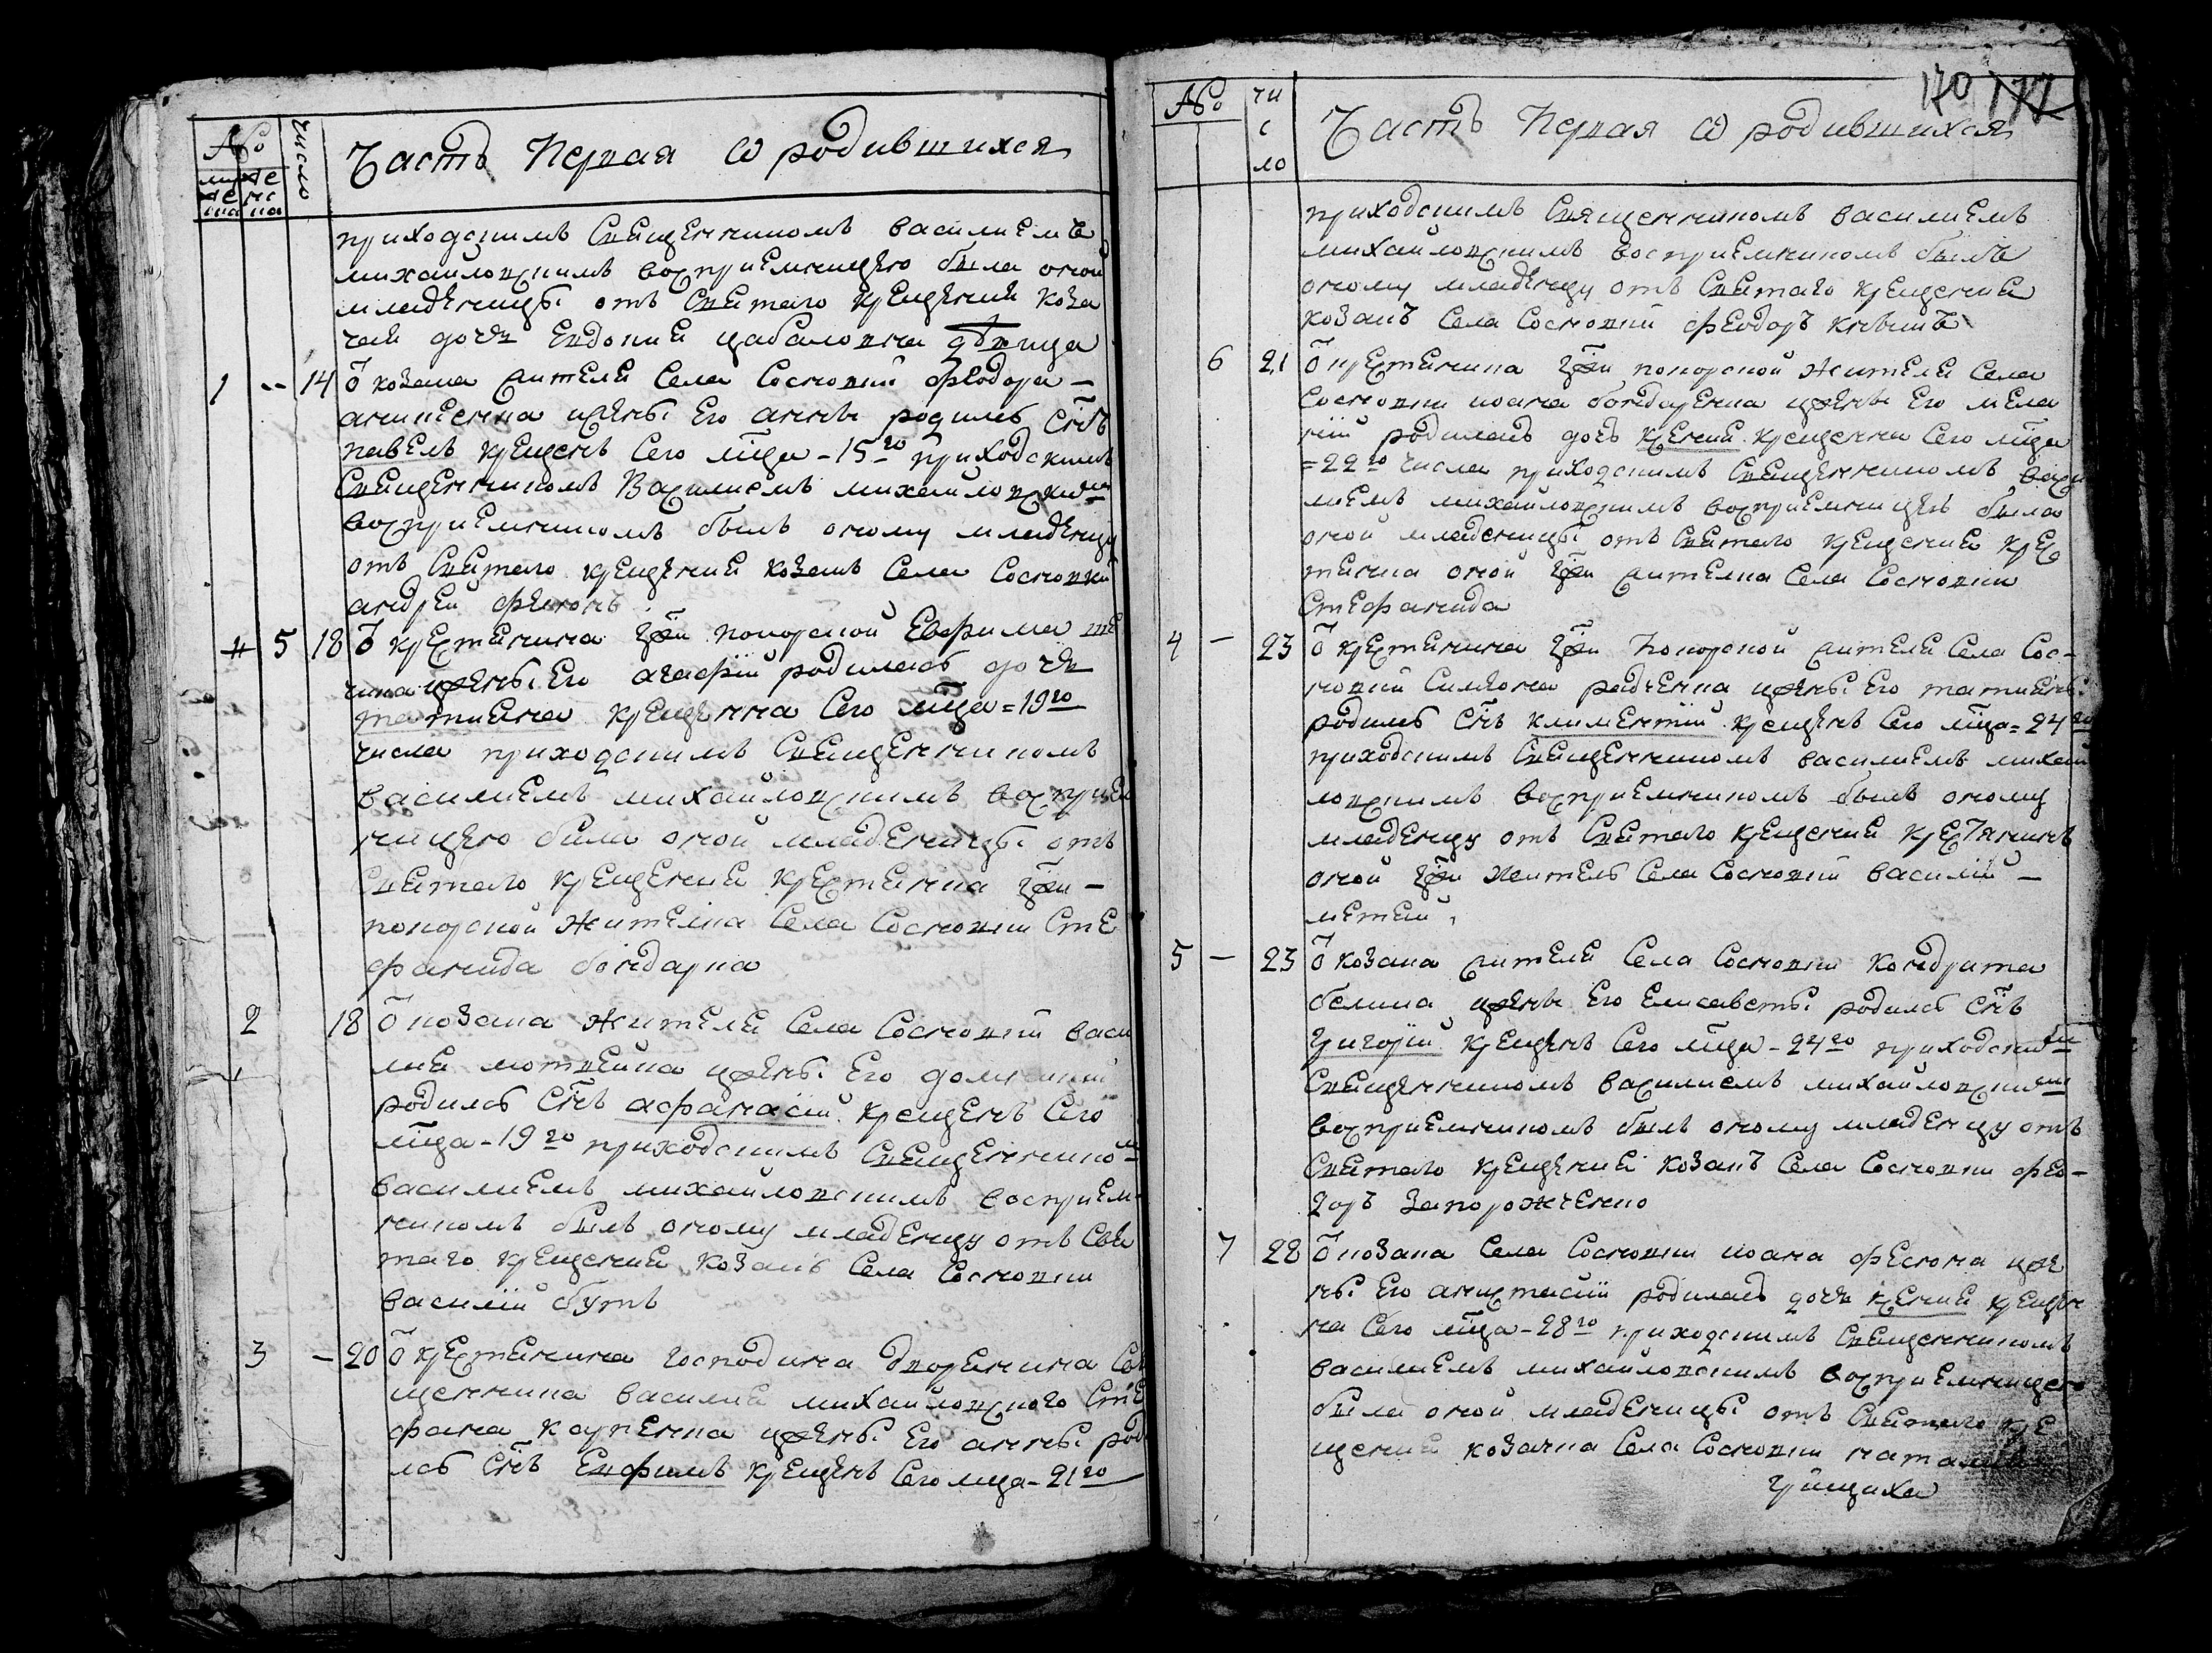 №
муже
ска
женс
ка
число
Часть Первая ѿ родившихся
приходскимъ Священникомъ василиемъ
михайловскимъ восприемницею была оной
младеницы отъ Святаго крещения коза
чая дочъ Евдокия девица
1 - 14 ѿ козака жителя Села Сосновки феодора
жены Его анны родилъ Снъ
павелъ крещенъ Сего мца - 15го приходскимъ
Священникомъ Василиемъ михайловским
восприемникомъ былъ оному младенцу
отъ Святаго крещения козакъ Села Сосновки
андрей
5 18 ѿ крестянина гжи покорской Евфима
жены Его агафии родиласъ дочъ
татияна крещенна Сего мца = 19го
числа приходскимъ Священникомъ
василиемъ михайловскимъ восприем
ницею была оной младеницы отъ
Святаго крещения крестянка гжи
покорской жителка Села Сосновки Сте
фанида бондарка
2 18 ѿ козака жителя Села Сосновки васи
лия мотвейка жены Его
родилъ Снъ афанасий крещенъ Сего
мца - 19го приходскимъ Священнико
василиемъ михайловскимъ восприем
никомъ былъ оному младенцу отъ Свя
таго крещения козакъ Села Сосновки
василий бутъ
3 - 20 ѿ крестянина господина дворянина Свя
щенника василия михайловского Сте
фана карпенка жены Его анны роди
лъ Снъ Евфимъ крещенъ Сего мца - 21го
170 177
№
чи
с
ло
Часть Первая ѿ родившихся
приходскимъ Священникомъ василиемъ
михайловскимъ восприемникомъ былъ
оному младенцу отъ Святаго крещения
козакъ Села Сосновки феодоръ
6 21 ѿ крестянина гжи покорской жителя Села
Сосновки иоана бондаренка жены Его мела
нии родиласъ дочъ ксения крещенна Сего мца
= 22го числа приходскимъ Священникомъ васи
лиемъ михайловскимъ восприемницею была
оной младеницы отъ Святаго крещения крес
тянка оной гжи жителка Села Сосновки
Стефанида
4 - 23 ѿ крестянина гжи Покорской жителя Села Сос-
новки Симеона радченка жены Его татияны
родилъ Снъ климентий крещенъ Сего мца = 24го
приходскимъ Священникомъ василиемъ михай
ловскимъ восприемникомъ былъ оному
младенцу отъ Святаго крещения крестянинъ
оной гжи житель Села Сосновки василий -
5 - 23 ѿ козака жителя Села Сосновки кондрата
белика жены Его Елисаветы родилъ Снъ
григорий крещенъ Сего мца - 24го приходским
Священникомъ василиемъ михайловским
восприемникомъ былъ оному младенцу отъ
Святаго крещения козакъ Села Сосновки фео-
доръ запорожченко
7 28 ѿ козака Села Сосновки иоана фесюна же
ны Его анастасии родиласъ дочъ ксения крещен
на Сего мца - 28го приходскимъ Священникомъ
василиемъ михайловскимъ восприемницею
была оной младеницы отъ Святаго кре
щения козачка Села Сосновки
грициха